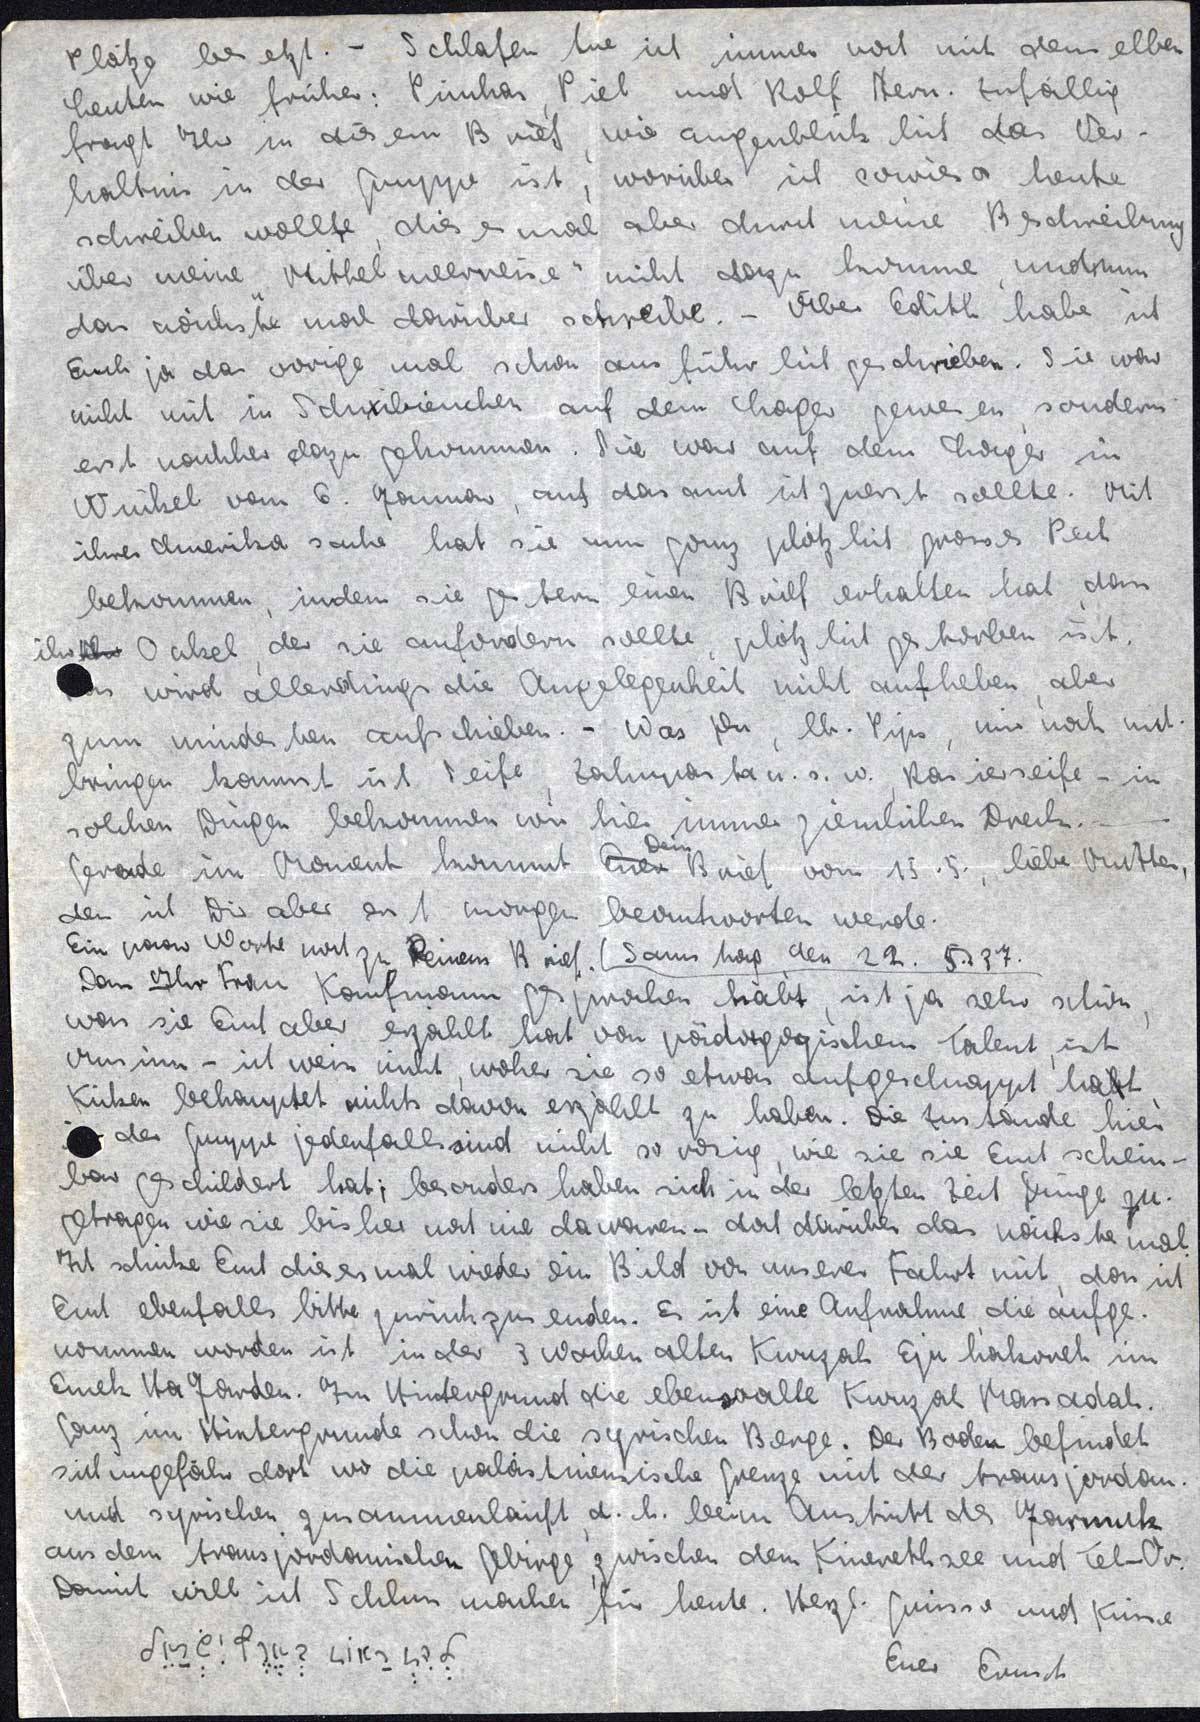 Plätze besetzt. - Schlafen tue ich immer noch mit demselben
Leuten wie früher: Pinchas, Piel und Rolf Stern. Zufällig
fragt Ihr in diesem Brief, wie augenblicklich das Ver-
hältnis in der Gruppe ist, worüber ich sowieso heute
schreiben wollte, diesesmal aber durch meine Beschreibung
über meine "Mittelmeerreise" nicht dazu komme und nun
das nächste mal darüber schreibe. - Über Edith habe ich
Euch ja das vorige mal schon ausführlich geschrieben. Sie war
nicht mit in Schnibinchen auf dem Lager gewesen, sondern
erst nachher dazu gekommen. Sie war auf dem Lager in
Winkel vom 6. Januar, auf das auch ich zuerst sollte. Mit
ihrer Amerika sache hat sie nun ganz plötzlich grosses Pech
bekommen, indem sie gestern einen Brief erhalten hat, dass
ihr Onkel, der sie anfordern sollte, plötzlich gestorben ist.
wird allerdings die Angelegenheit nicht aufheben, aber
zum mindesten aufschieben. - Was Du, lb. Pips, mir noch mit-
bringen kannst ist Seife, Zahnpasta u. s. w. Rasierseife - in
solchen Dingen bekommen wir hier immer ziemlichen Dreck. -
Gerade im Moment kommt Euer Dein Brief vom 15.5., liebe Mutter,
den ich Dir aber erst morgen beantworten werde.
Ein paar Worte noch zu Deinem Brief. (Samstag den 22. 5. 37.
Dass Ihr Frau Kaufmann gesprochen habt, ist ja sehr schön,
was sie Euch aber erzählt hat von pädagogischem Talent, ist
Unsinn - ich weiss nicht, woher sie so etwas aufgeschnappt hat,
Küken behauptet nichts davon erzählt zu haben. Die Zustände hier
der Gruppe jedenfalls sind nicht so rosig, wie sie sie Euch schein-
bar geschildert hat; besonders haben sich in der letzten Zeit Dinge zu-
getragen wie sie bisher noch nie da waren - doch darüber das nächste mal.
Ich schicke Euch diesesmal wieder ein Bild von unserer Fahrt mit, das ich
Euch ebenfalls bitte zurückzusenden. Es ist eine Aufnahme, die aufge-
nommen worden ist in der 3 Wochen alten Kwuzah Ejn hakoreh im
Emek Ha Jarden. Im Hintergrund die ebensoalte Kwuzah Massadah.
Ganz im Hintergrunde schon die syrischen Berge. Der Boden befindet
sich ungefähr dort wo die palästinensische Grenze mit der transjordan.
und syrischen zusammenläuft, d. h. beim Austritt des Jarmuk
aus dem transjordanischen Gebirge, zwischen dem Kinerethsee und Tel-Or.
Damit will ich Schluss machen für heute. Herzl. Grüsse und Küsse
Euer Ernsch